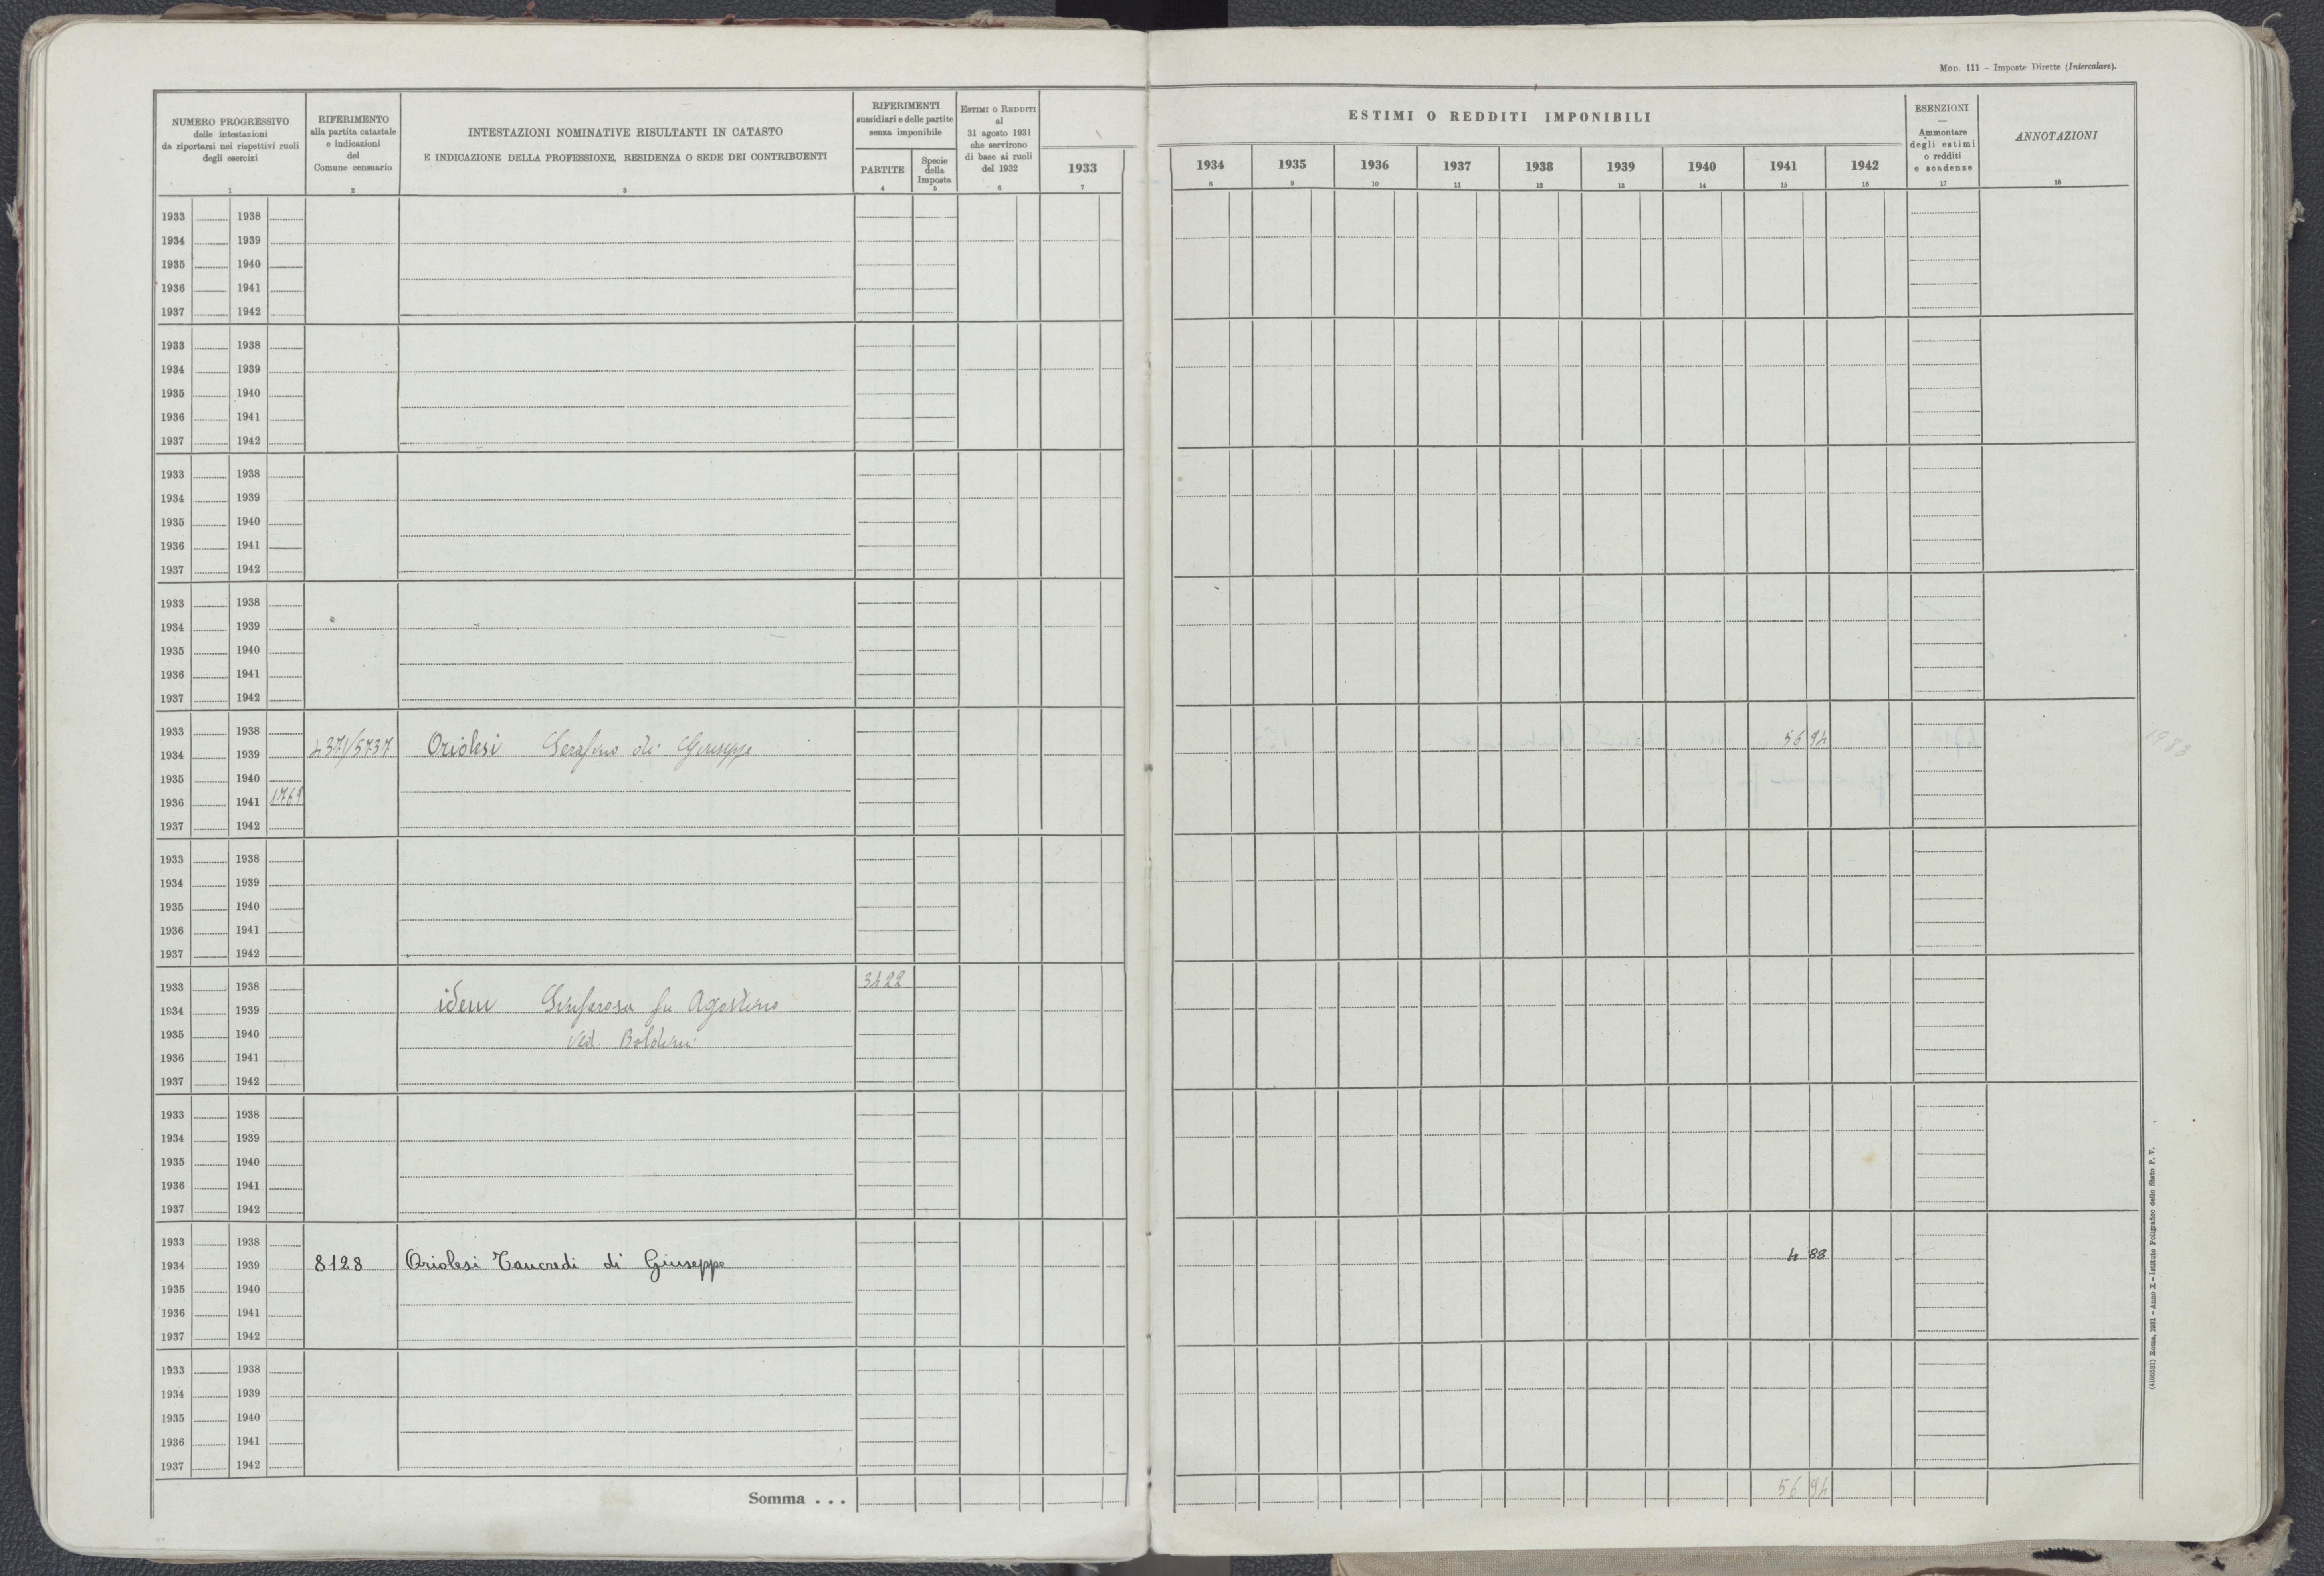 Mod. 111 – Imposte Dirette (Intercalare).
NUMERO PROGRESSIVO
delle intestazioni
da riportarsi nei rispettivi ruoli
degli esercizi
1
RIFERIMENTO
alla partita catastale
e indicazioni
del
Comune censuario
2
INTESTAZIONI NOMINATIVE RISULTANTI IN CATASTO
E INDICAZIONE DELLA PROFESSIONE, RESIDENZA O SEDE DEI CONTRIBUENTI
3
RIFERIMENTI
sussidiari e delle partite
senza imponibile
PARTITE
4
Specie
della
Imposta
5
Estimi o Redditi
al
31 agosto 1931
che servirono
di base ai ruoli
del 1932
6
ESTIMI O REDDITI IMPONIBILI
1933 1934 1935 1936 1937 1938 1939 1940 1941 1942
7 8 9 10 11 12 13 14 15 16
ESENZIONI
—
Ammontare
degli estimi
o redditi
e scadenze
17
ANNOTAZIONI
18
1933 1938
1934 1939
1935 1940
1936 1941
1937 1942
1933 1938
1934 1939
1935 1940
1936 1941
1937 1942
1933 1938
1934 1939
1935 1940
1936 1941
1937 1942
1933 1938
1934 1939
1935 1940
1936 1941
1937 1942
1933 1938
1934 1939 4371/5737 Oriolesi Serafino di Giuseppe 56 94
1935 1940
1936 1941 1769
1937 1942
1933 1938
1934 1939
1935 1940
1936 1941
1937 1942
1933 1938 3422
1934 1939 idem Sinforosa fu Agostino
1935 1940 ved. Boldrini
1936 1941
1937 1942
1933 1938
1934 1939
1935 1940
1936 1941
1937 1942
1933 1938
1934 1939 8128 Oriolesi Tancredi di Giuseppe 4 88
1935 1940
1936 1941
1937 1942
1933 1938
1934 1939
1935 1940
1936 1941
1937 1942
Somma . . . 56 94
(4103531) Roma, 1931 – Anno X – Istituto Poligrafico dello Stato P. V.